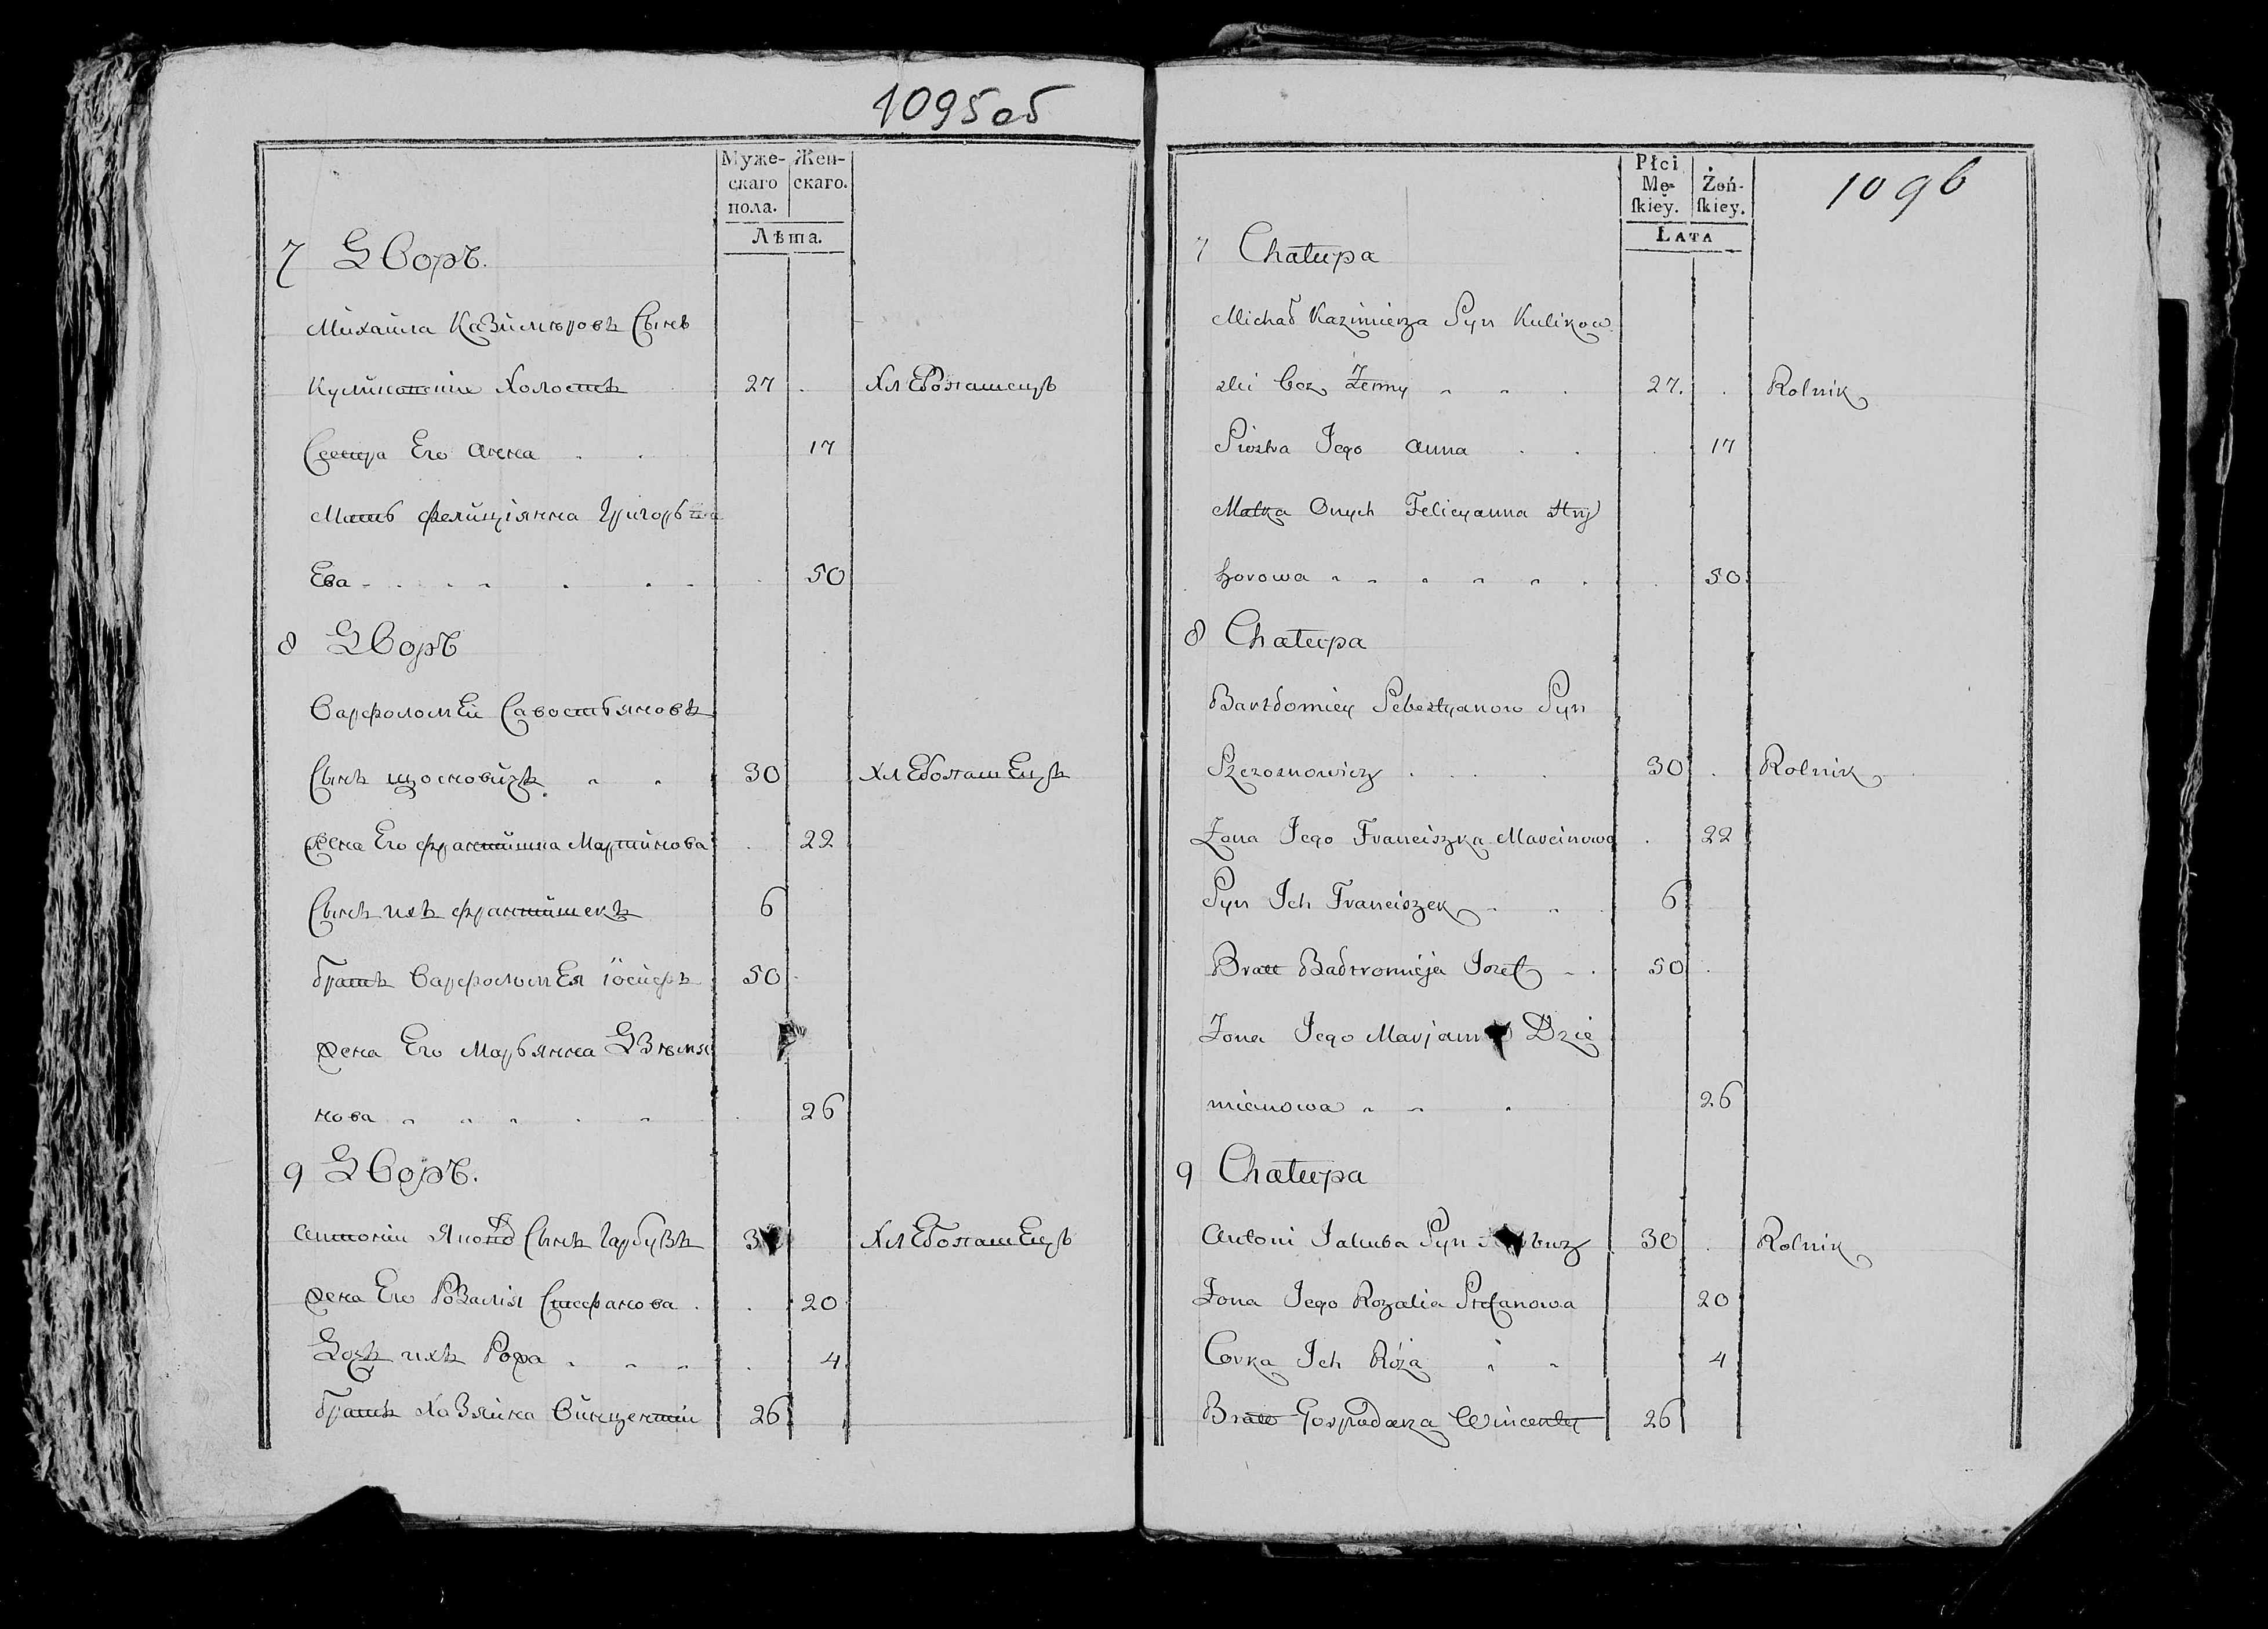 1095об
Муже- Жен-
скаго скаго.
пола.
Лѣта.
7 Дворъ.
Михайла Казимѣровъ Сынъ
Куликовскій Холостъ 27 Хлебопашецъ
Сестра Его Анна 17
Мать Фелиціянна Григорье
Ева 50
8 Дворъ
Варфоломей Савостьяновъ
Сынъ Щосновичъ 30 Хлебопашецъ
Жена Его Франтишка Мартинова 22
Сынъ ихъ Франтишекъ 6
братъ Варфоломея Іосифъ 50
Жена Его Марьянна Дземя
нова 26
9 Дворъ.
Антоній Якова Сынъ Гарбузъ 3 Хлебопашецъ
Жена Его Розалія Стефанова 20
Дочь ихъ Рожа 4
братъ Хазяина Винцентій 26
1096
Płci
Mę- Żeń-
skiey. skiey.
LATA
7 Chałupa
Michał Kazimierza Syn Kulikow
ski bez Żenny 27. Rolnik
Siostra Jego Anna 17
Matka Onych Felicyanna Hry
horowa 50
8 Chałupa
Bartłomiey Sebestyanow Syn
Szczosnowicz 30 Rolnik
Żona Jego Franciszka Marcinowa 22
Syn Ich Franciszek 6
Bratt Bałtromieja Jozef 50
Żona Jego Marjann Dzie
mianowa 26
9 Chałupa
Antoni Jakuba Syn buz 30 Rolnik
Żona Jego Rozalia Stefanowa 20
Corka Ich Róża 4
Bratt Gospodarza Wincenty 26